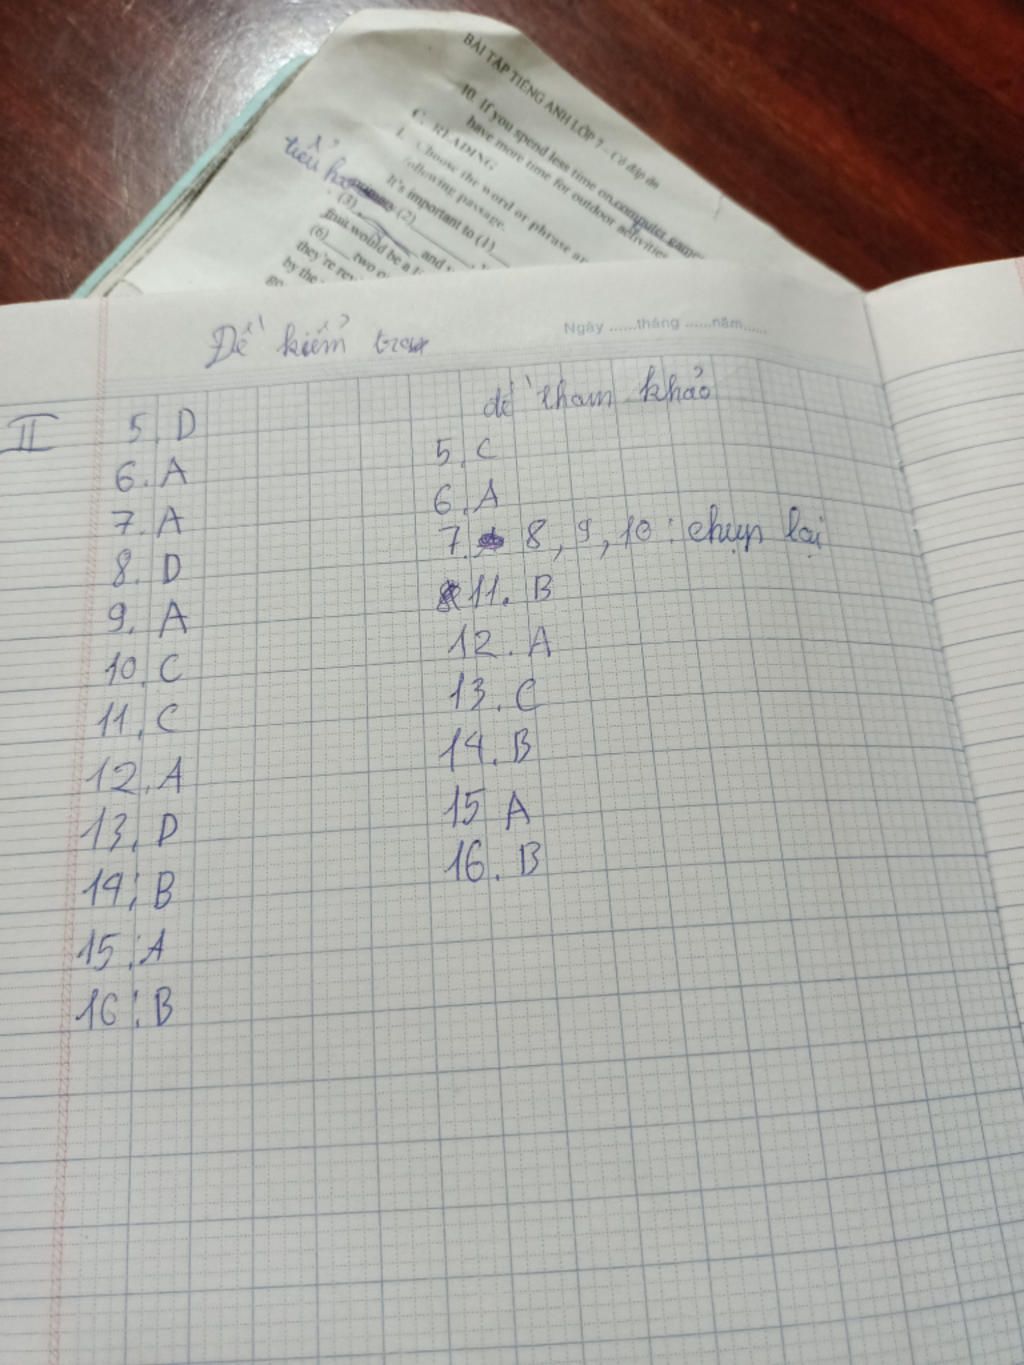 BÀI TẬP TIẾNG ANH LỚP 7 – Có đáp án
10. If you spend less time on computer games
have more time for outdoor activities
C. READING
1. Choose the word or phrase
following passage.
It's important to (1)
(3) (2) and
fruit would be a
(6) two
they're
by the
go
Đề kiểm tra
Ngày ......tháng ......năm......
đề tham khảo
II
5. D
6. A
7. A
8. D
9. A
10. C
11. C
12. A
13. D
14. B
15. A
16. B
5. C
6. A
7. 8, 9, 10: chụp lại
11. B
12. A
13. C
14. B
15 A
16. B